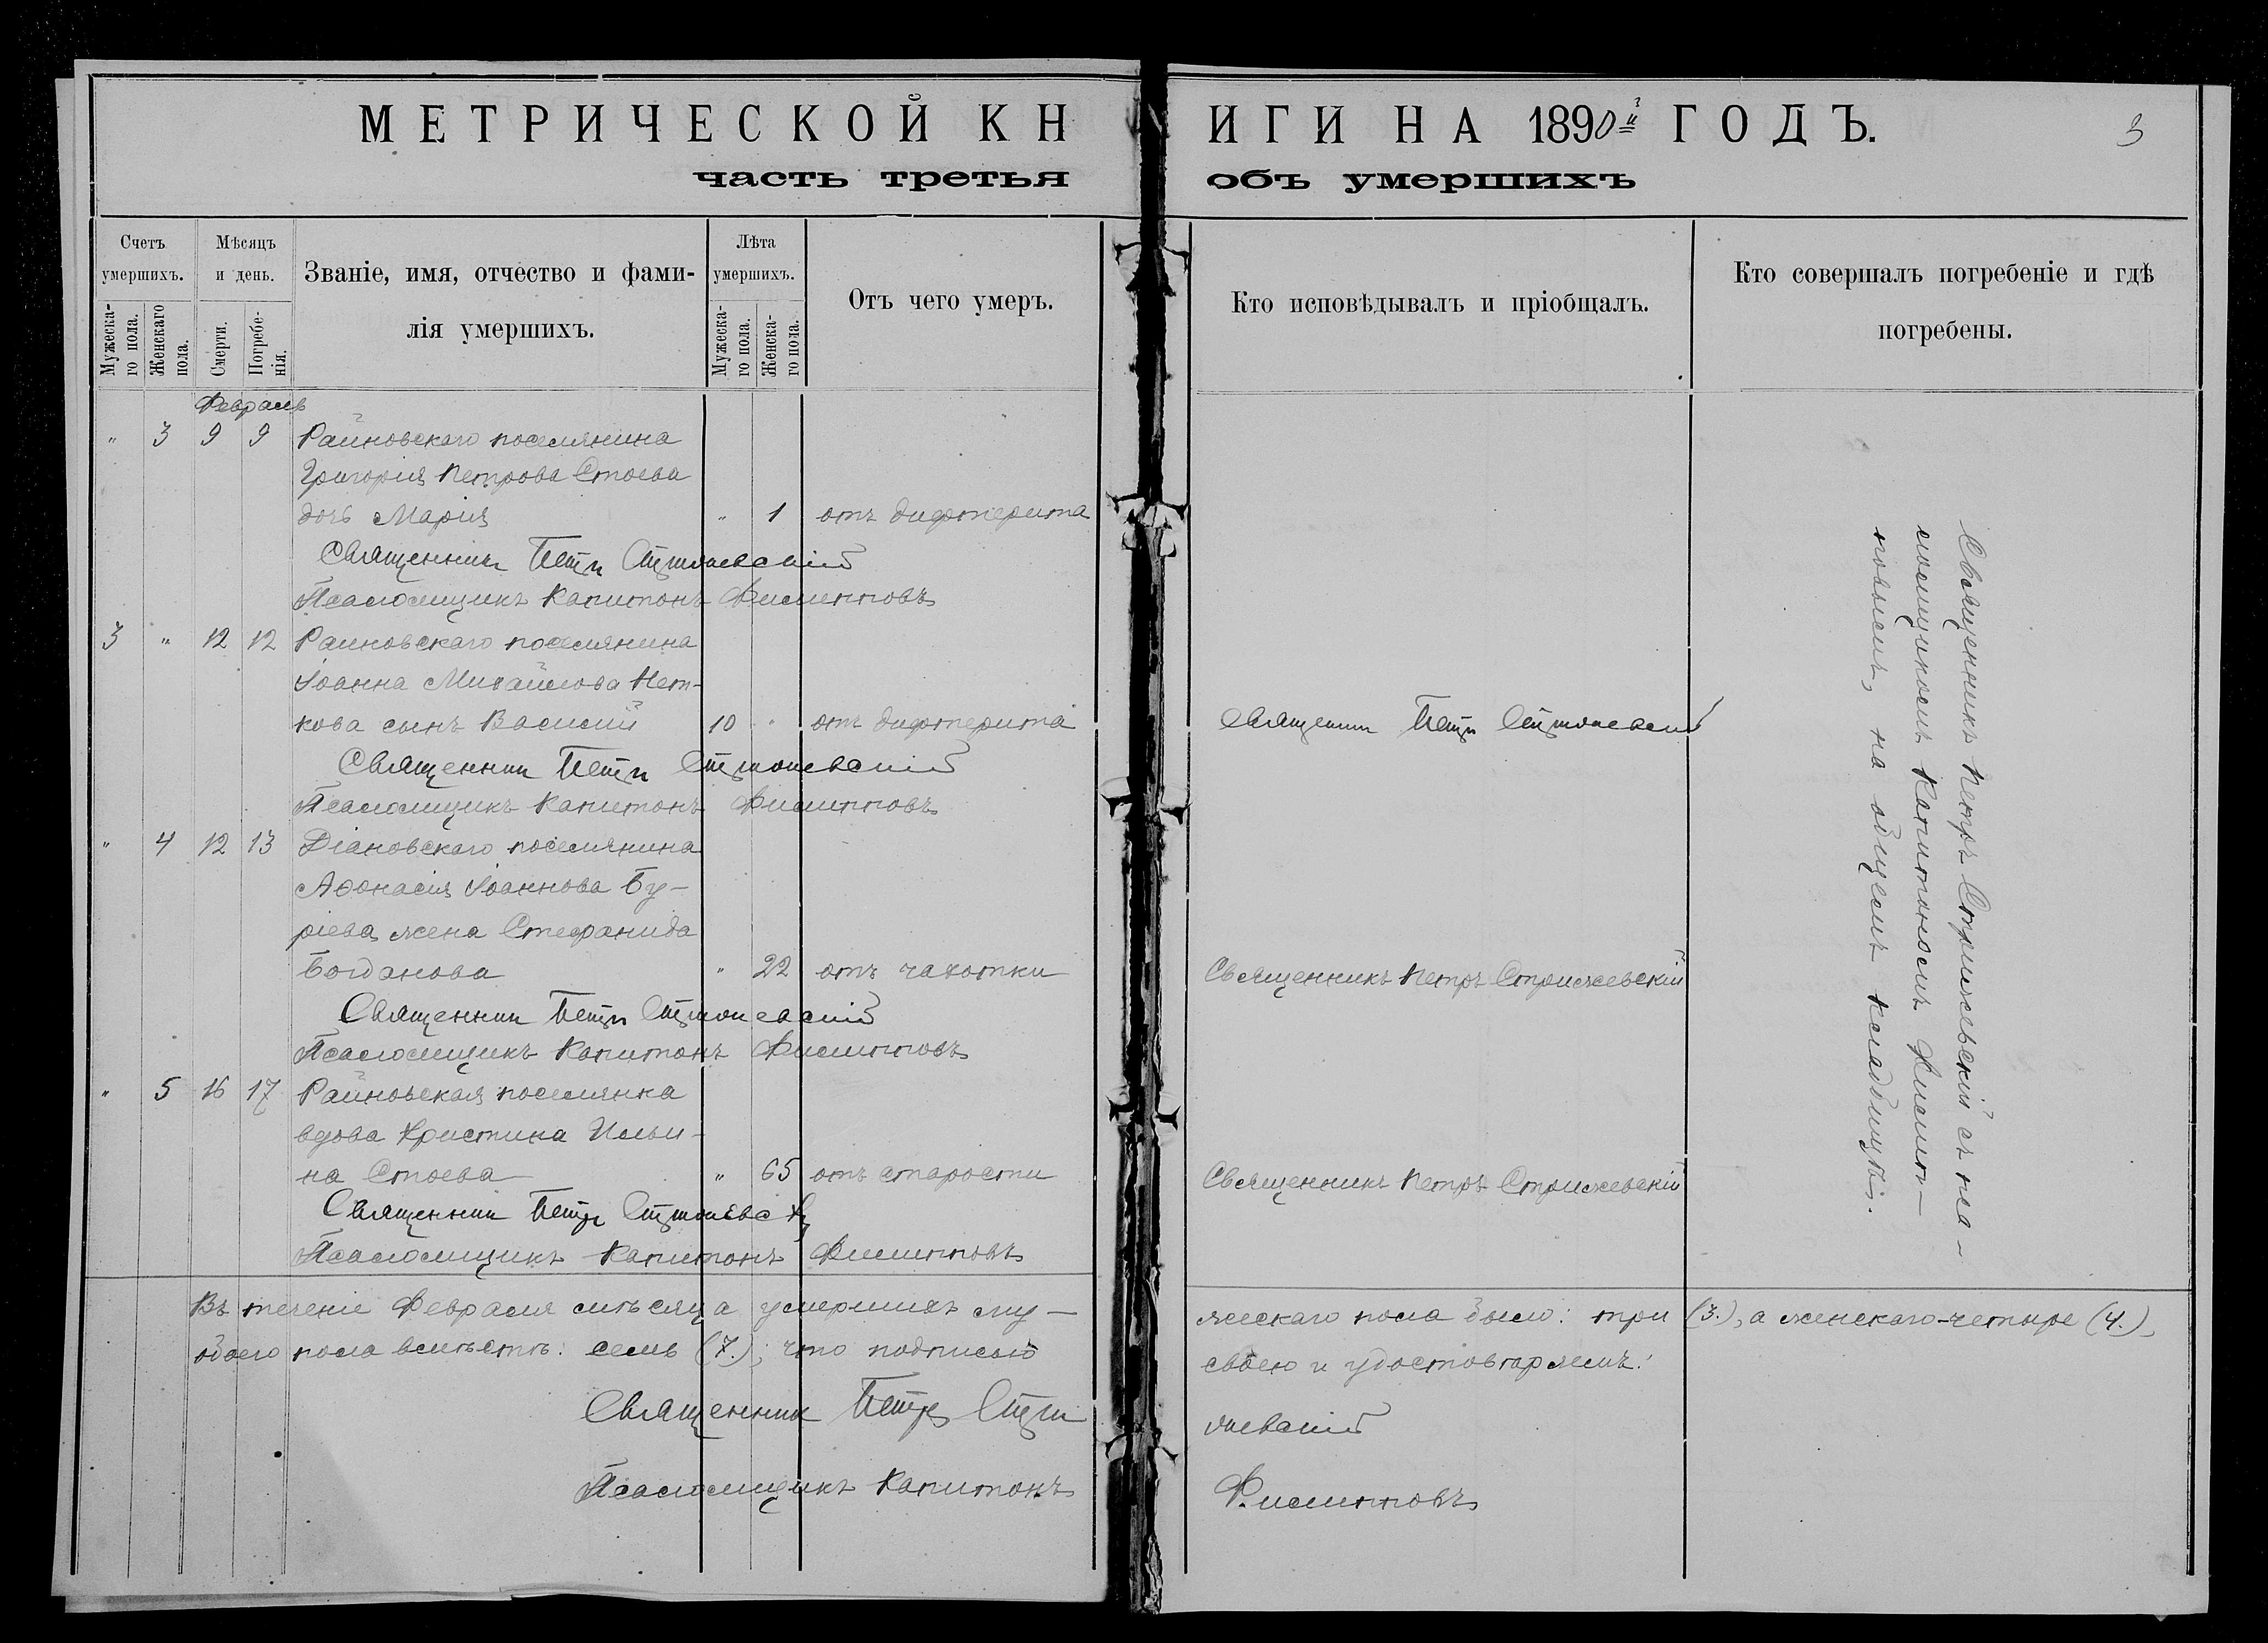 МЕТРИЧЕСКОЙ КНИГИ НА 1890й ГОДЪ.
3
часть третья объ умершихъ
Счетъ умершихъ.
Мужеска-го пола.
Женскаго пола.
Мѣсяцъ и день.
Смерти.
Погребе-нія.
Званіе, имя, отчество и фами-
лія умершихъ.
Лѣта умершихъ.
Мужеска-го пола.
Женска-го пола.
Отъ чего умеръ.
Кто исповѣдывалъ и пріобщалъ.
Кто совершалъ погребеніе и гдѣ
погребены.
Февраль
" 3 9 9 Райновскаго поселянина
Григорія Петрова Стоева
дочь Марія " 1 отъ дифтерита
Священникъ Петръ Стрижевскій
Псаломщикъ Капитонъ Филипповъ
3 " 12 12 Райновскаго поселянина
Іоанна Михайлова Пет-
кова сынъ Василій 10 " отъ дифтерита Священникъ Петръ Стрижевскій
Священникъ Петръ Стрижевскій
Псаломщикъ Капитонъ Филипповъ
" 4 12 13 Діановскаго поселянина
Аѳонасія Іоаннова Бу-
ріева жена Стефанида
Богданова " 22 отъ чахотки Священникъ Петръ Стрижевскій
Священникъ Петръ Стрижевскій
Псаломщикъ Капитонъ Филипповъ
" 5 16 17 Райновская поселянка
вдова Христина Ильи-
на Стоева " 65 отъ старости Священникъ Петръ Стрижевскій
Священникъ Петръ Стрижевскій
Псаломщикъ Капитонъ Филипповъ
Священникъ Петръ Стрижевскій съ пса-
ломщикомъ Капитономъ Филип-
повымъ, на общемъ кладбищѣ.
Въ теченіе Февраля мѣсяца умершихъ му-жескаго пола было: три (3.), а женскаго-четыре (4.),
обоего пола вмѣстѣ: семь (7.); что подписью своею и удостовѣряемъ:
Священникъ Петръ Стрижевскій
Псаломщикъ Капитонъ Филипповъ